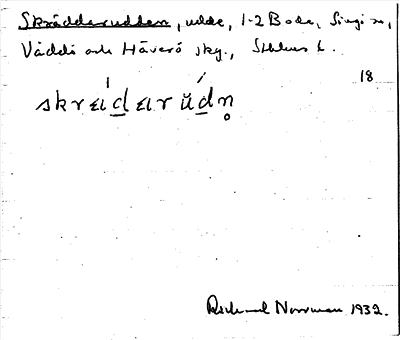 Skräddarudden, udde, 1-2 Boda, Singö sn,
Väddö och Häverö skg., Sthlms l.
18
skrädarŭdn̥
Richard Norrman 1932.